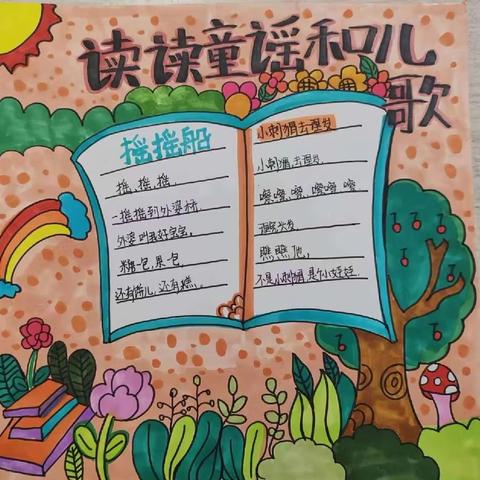 读读童谣和儿
歌
摇摇船
摇、摇、摇,
一摇摇到外婆桥,
外婆叫我好宝宝,
糖一包,果一包,
还有饼儿,还有糕。
小刺猬去理发
小刺猬,去理发,
嚓、嚓、嚓、嚓、嚓、嚓
理完头发,
瞧瞧他,
不是小刺猬,是个小娃娃。